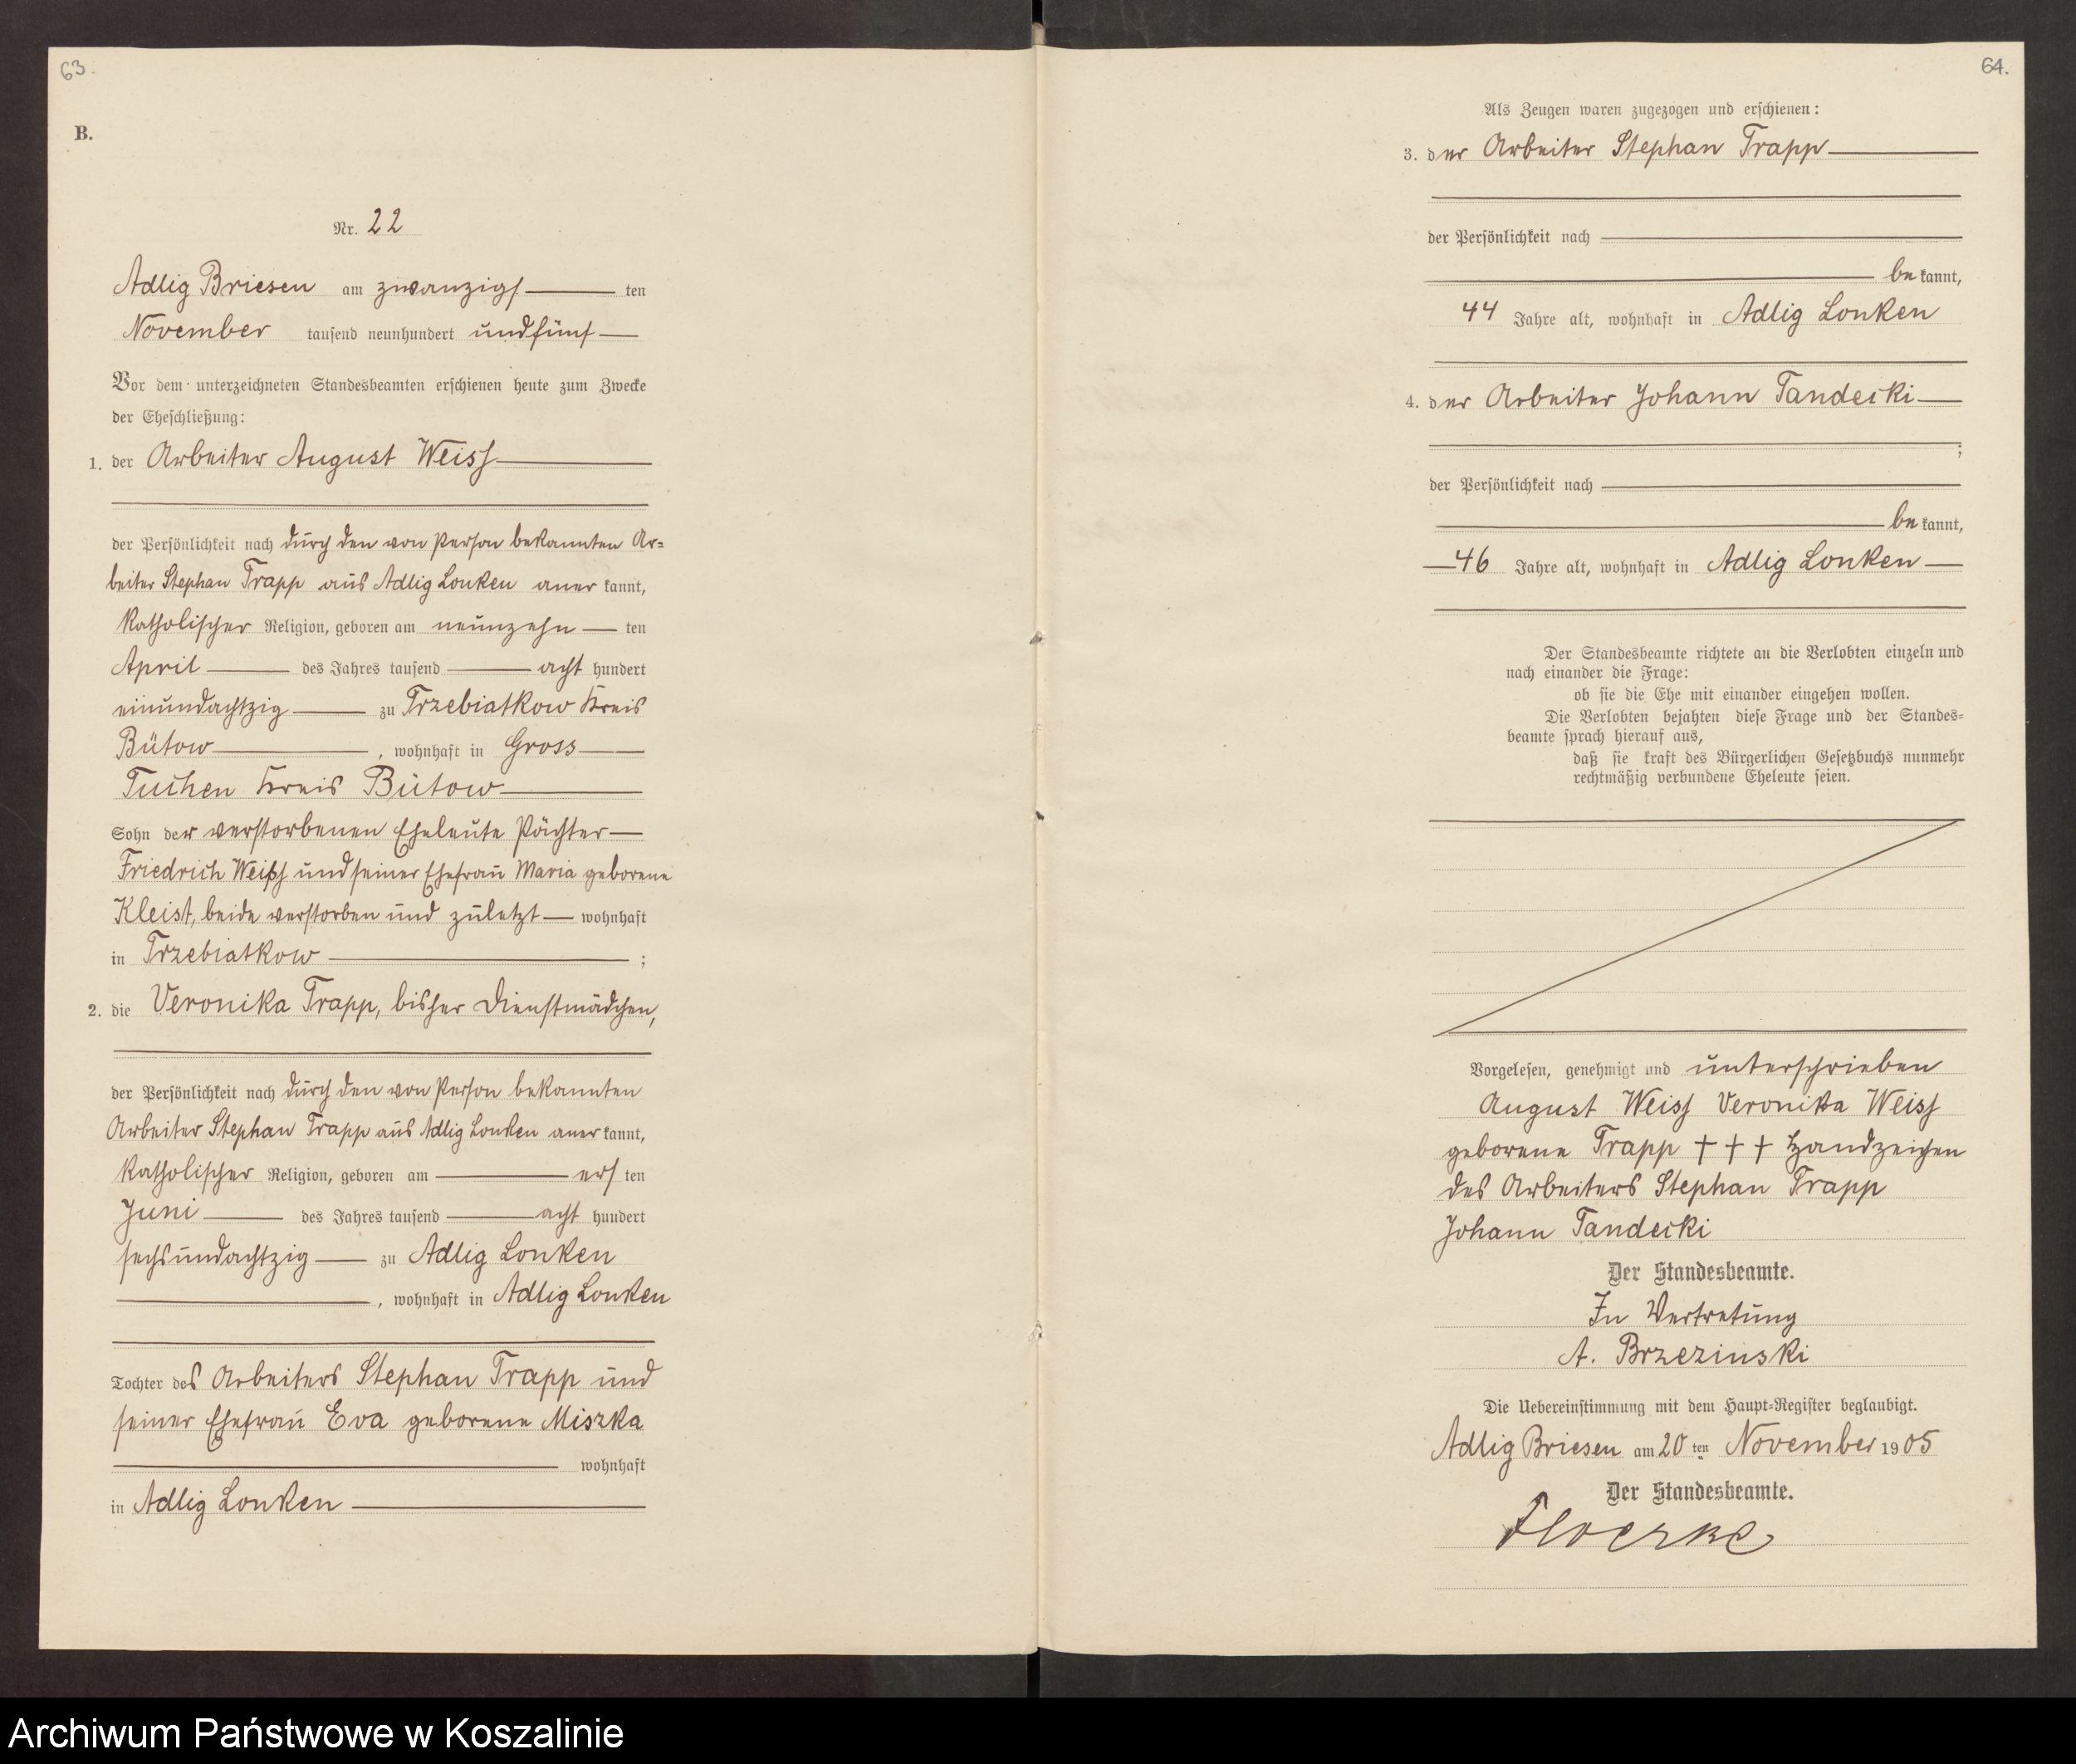 63.
B.
Nr. 22
Adlig Briesen am zwanzigsten
November tausend neunhundert und fünf
Vor dem unterzeichneten Standesbeamten erschienen heute zum Zwecke
der Eheschließung:
1. der Arbeiter August Weiss
der Persönlichkeit nach durch den von Person bekannten Ar=
beiter Stephan Trapp aus Adlig Lonken anerkannt,
katholischer Religion, geboren am neunzehnten
April des Jahres tausend acht hundert
einundachtzig zu Trzebiatkow Kreis
Bütow, wohnhaft in Gross
Tuchen Kreis Bütow
Sohn der verstorbenen Eheleute Pächter
Friedrich Weiss und seiner Ehefrau Maria geborene
Kleist, beide verstorben und zuletzt wohnhaft
in Trzebiatkow ;
2. die Veronika Trapp, bisher Dienstmädchen,
der Persönlichkeit nach durch den von Person bekannten
Arbeiter Stephan Trapp aus Adlig Lonken anerkannt,
katholischer Religion, geboren am ersten
Juni des Jahres tausend acht hundert
sechsundachtzig zu Adlig Lonken
, wohnhaft in Adlig Lonken
Tochter des Arbeiters Stephan Trapp und
seiner Ehefrau Eva geborene Miszka
wohnhaft
in Adlig Lonken
64.
Als Zeugen waren zugezogen und erschienen:
3. der Arbeiter Stephan Trapp
der Persönlichkeit nach
bekannt,
44 Jahre alt, wohnhaft in Adlig Lonken
4. der Arbeiter Johann Tandecki
;
der Persönlichkeit nach
bekannt,
46 Jahre alt, wohnhaft in Adlig Lonken
Der Standesbeamte richtete an die Verlobten einzeln und
nach einander die Frage:
ob sie die Ehe mit einander eingehen wollen.
Die Verlobten bejahten diese Frage und der Standes=
beamte sprach hierauf aus,
daß sie kraft des Bürgerlichen Gesetzbuchs nunmehr
rechtmäßig verbundene Eheleute seien.
Vorgelesen, genehmigt und unterschrieben
August Weiss Veronika Weiss
geborene Trapp + + + Handzeichen
des Arbeiters Stephan Trapp
Johann Tandecki
Der Standesbeamte.
In Vertretung
A. Brzezinski
Die Uebereinstimmung mit dem Haupt=Register beglaubigt.
Adlig Briesen am 20 ten November 1905
Der Standesbeamte.
Floerke
Archiwum Państwowe w Koszalinie